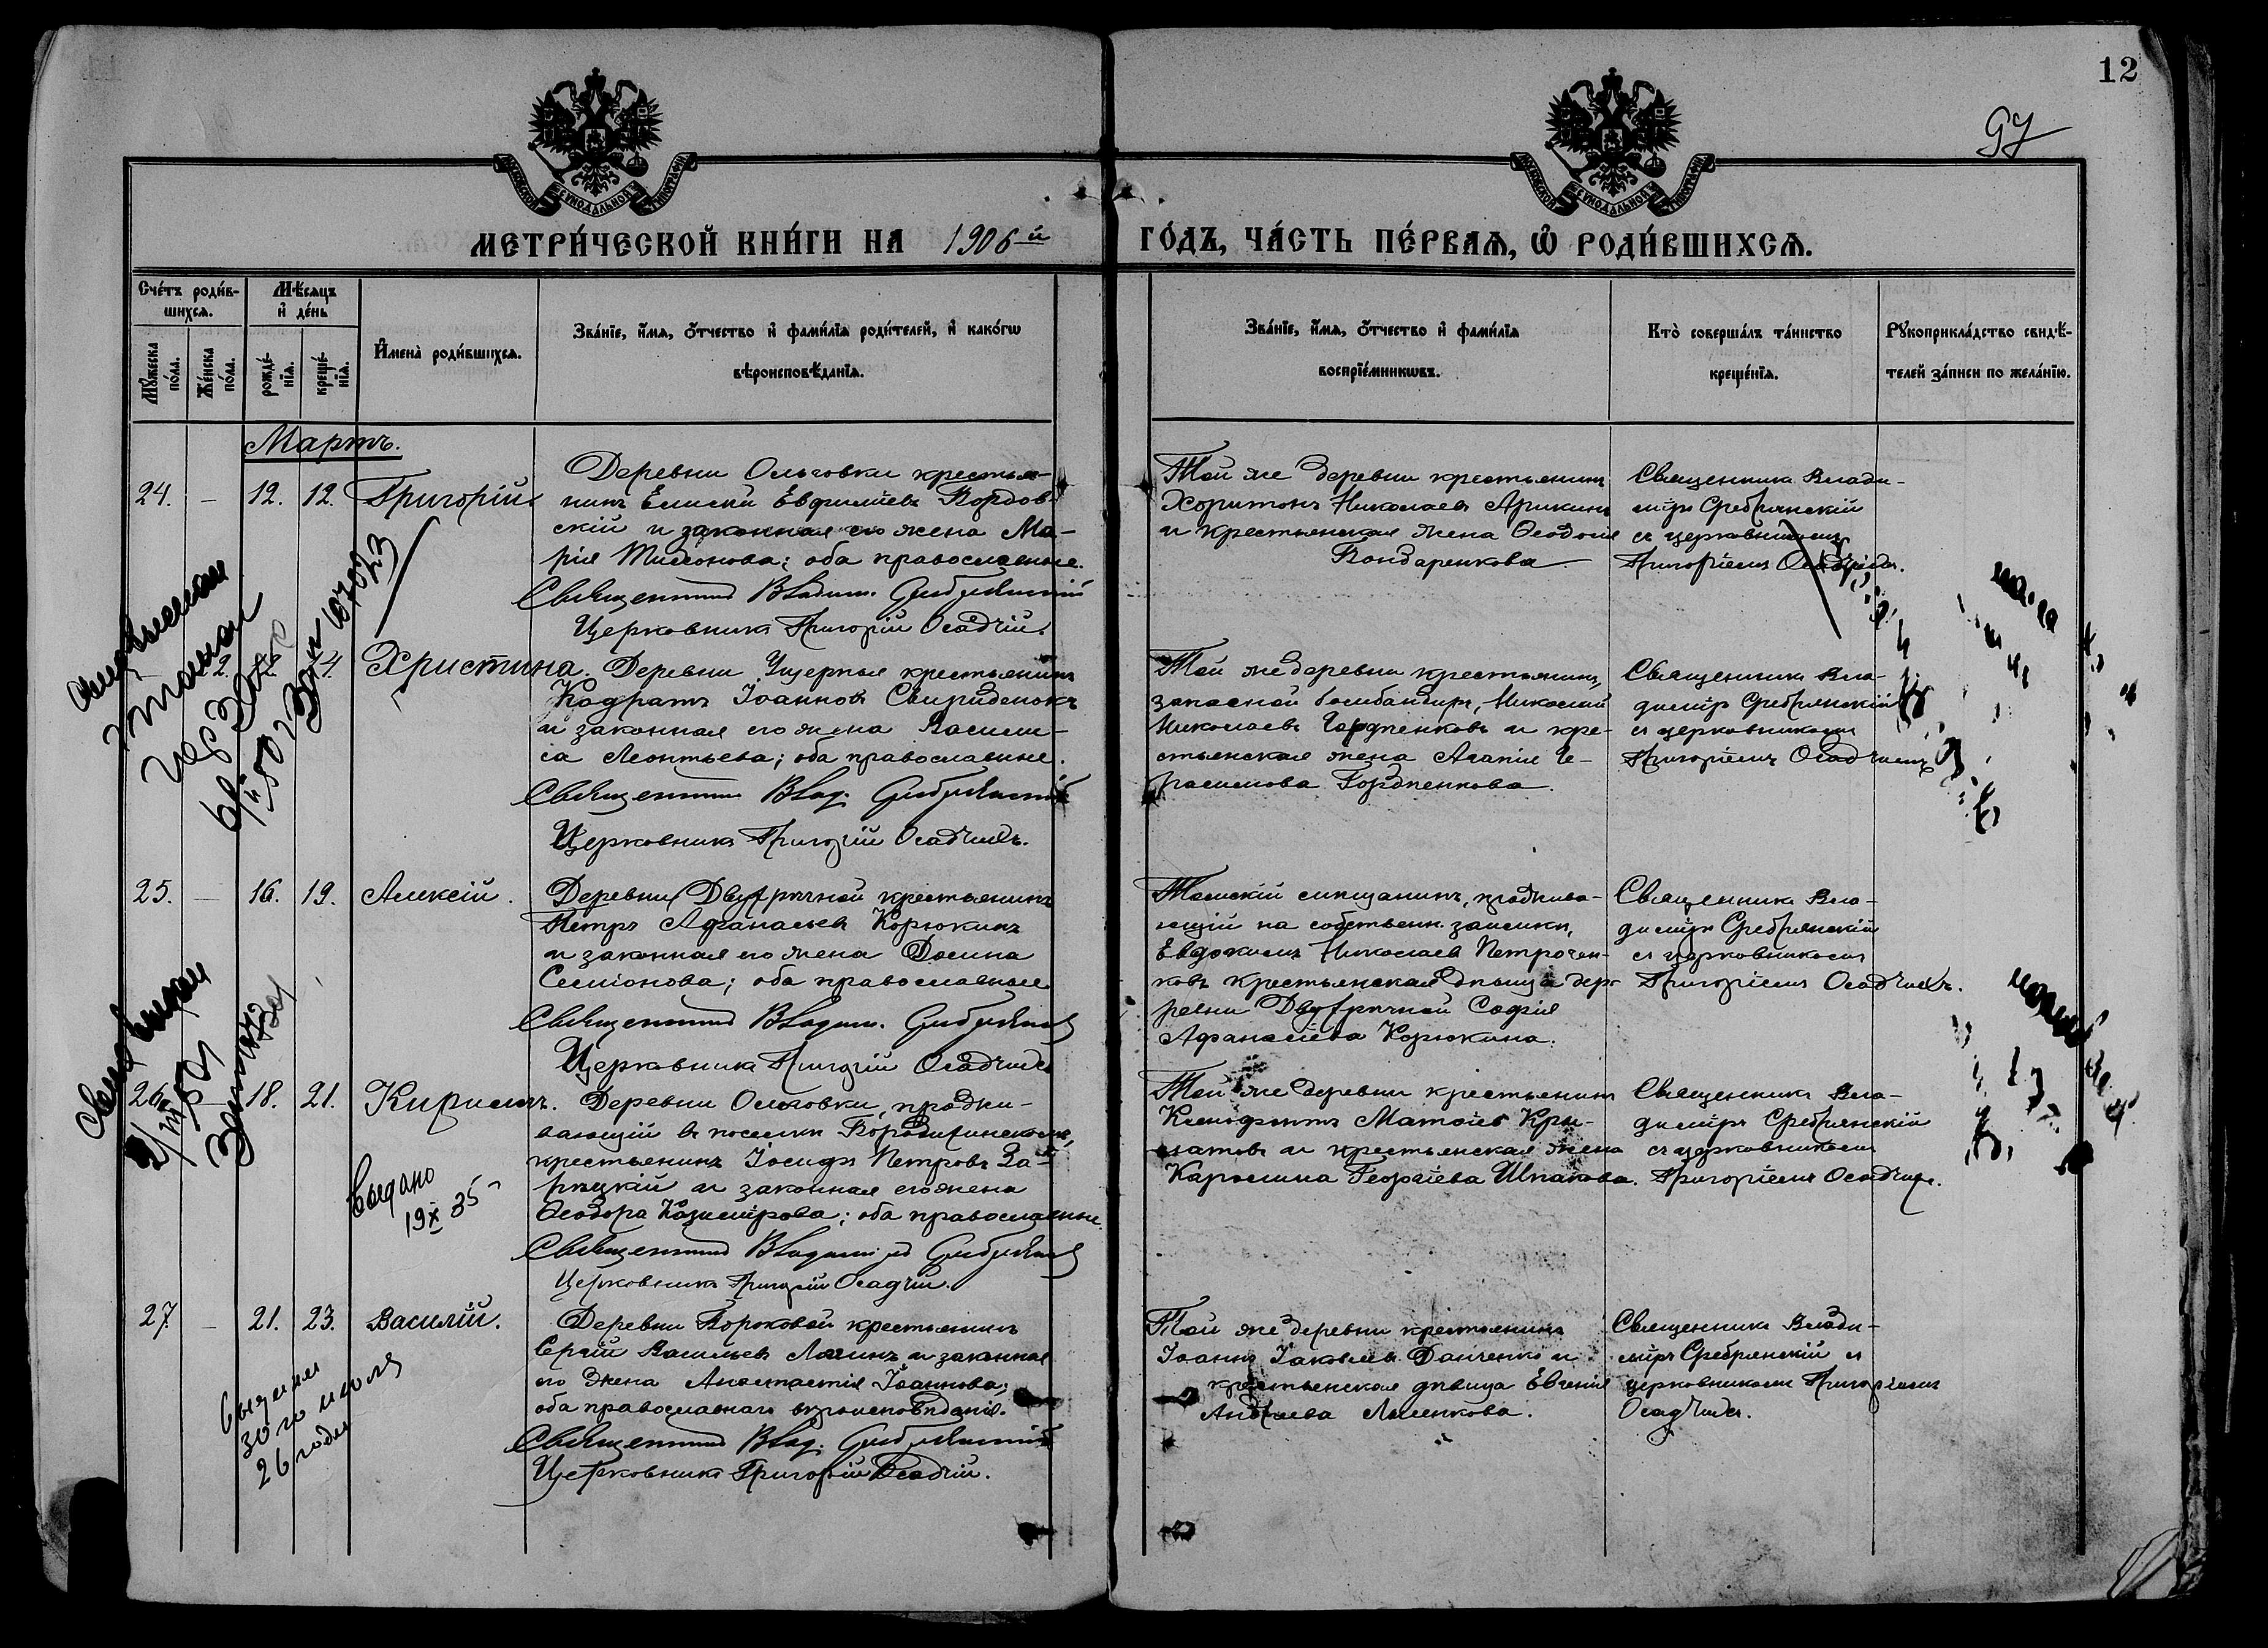 12
97
МОСКОВСКОЙ СѴНОДАЛЬНОЙ ТИПОГРАФІИ
МОСКОВСКОЙ СѴНОДАЛЬНОЙ ТИПОГРАФІИ
МЕТРИ́ЧЕСКОЙ КНИ́ГИ НА 1906й ГО́ДЪ, ЧА́СТЬ ПЕ́РВАѦ, Ѡ҆ РОДИ́ВШИХСѦ.
Сче́тъ роди́в-
шихсѧ.
Мѣ́сѧцъ
и҆ де́нь
Мꙋ́жеска
по́ла.
Же́нска
по́ла.
рожде́-
нїѧ.
креще́-
нїѧ.
И҆мена̀ роди́вшихсѧ.
Зва́нїе, и҆́мѧ, ѻ҆́тчество и҆ фами́лїѧ роди́телей, и҆ како́гѡ
вѣроисповѣ́данїѧ.
Зва́нїе, и҆́мѧ, ѻ҆́тчество и҆ фами́лїѧ
воспрїе́мникѡвъ.
Кто̀ соверша́лъ та́инство
креще́нїѧ.
Рꙋкоприкла́дство свидѣ́-
телей за́писи по жела́нїю.
Мартъ.
24. – 12. 12. Григорій
Деревни Ольговки крестья-
нинъ Елисей Евфиміевъ Бордов-
скій и законная его жена Ма-
рія Тимонова; оба православные.
Священникъ Владим. Сребрянскій
Церковникъ Григорій Осадчій.
Той же деревни крестьянинъ
Харитонъ Николаевъ Арикинъ
и крестьянская жена Ѳеодосія
Бондаренкова
Священникъ Влади-
міръ Сребрянскій
съ церковникомъ
Григоріемъ Осадчимъ.
Христина. Деревни Ущерпья крестьянинъ
Кодратъ Іоанновъ Свириденокъ
и законная его жена Васили-
са Леонтьева; оба православные.
Священникъ Влад. Сребрянскій
Церковникъ Григорій Осадчій.
Той же деревни крестьянинъ,
запасной бомбандиръ, Николай
Николаевъ Гордпенковъ и кре-
стьянская жена Агапія Ге-
расимова Гордпенкова.
Священникъ Вла-
диміръ Сребрянскій
съ церковникомъ
Григоріемъ Осадчимъ
25. – 16. 19. Алексій.
Деревни Двурѣчной крестьянинъ
Петръ Аѳанасьевъ Корюкинъ
и законная его жена Домна
Симіонова; оба православные
Священникъ Владим. Сребрянскій
Церковникъ Григорій Осадчій
Томскій мѣщанинъ, проджива-
ющій на собственн. заимкѣ,
Евдокимъ Николаевъ Петрочен-
ковъ крестьянская дѣвица де-
ревни Двурѣчной Софія
Аѳанасіева Корюкина.
Священникъ Вла-
диміръ Сребрянскій
съ церковникомъ
Григоріемъ Осадчимъ.
26. – 18. 21. Кириллъ.
Деревни Ольговки, проджи-
вающій въ поселкѣ Бородинскомъ,
крестьянинъ Іосифъ Петровъ За-
рѣцкій и законная его жена
Ѳеодора Казимірова; оба православные.
Священникъ Владиміръ Сребрянскій
Церковникъ Григорій Осадчій.
Той же деревни крестьянинъ
Ксенофонтъ Матѳіевъ Кры-
латовъ и крестьянская жена
Каролина Георгіева Шпакова.
Священникъ Вла-
диміръ Сребрянскій
съ церковникомъ
Григоріемъ Осадчимъ.
Выдано
19 X 35
27. – 21. 23. Василій.
Деревни Бороковой крестьянинъ
Сергій Васильевъ Лагинъ и законная
его жена Анастасія Іоаннова;
оба православнаго вѣроисповѣданія.
Священникъ Влад. Сребрянскій
Церковникъ Григорій Осадчій.
Той же деревни крестьянинъ
Іоаннъ Іаковлевъ Данченко и
крестьянская дѣвица Евгенія
Андреева Лиленкова.
Священникъ Влади-
міръ Сребрянскій съ
церковникомъ Григоріемъ
Осадчимъ.
30 го июля
26 года